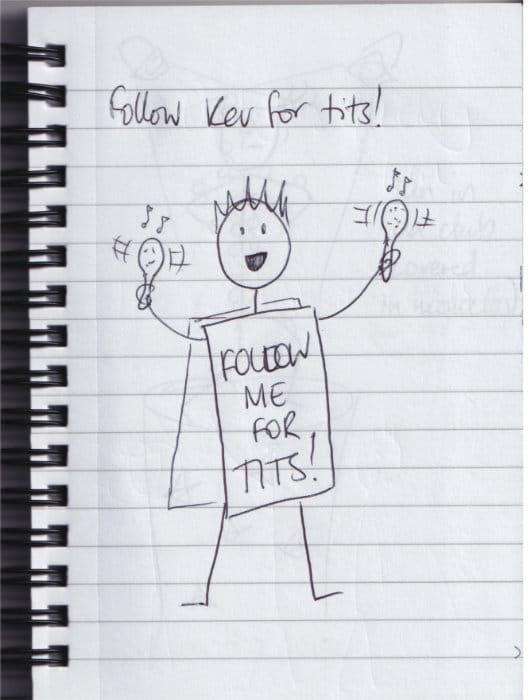 Follow Kev for tits!
FOLLOW
ME
FOR
TITS!